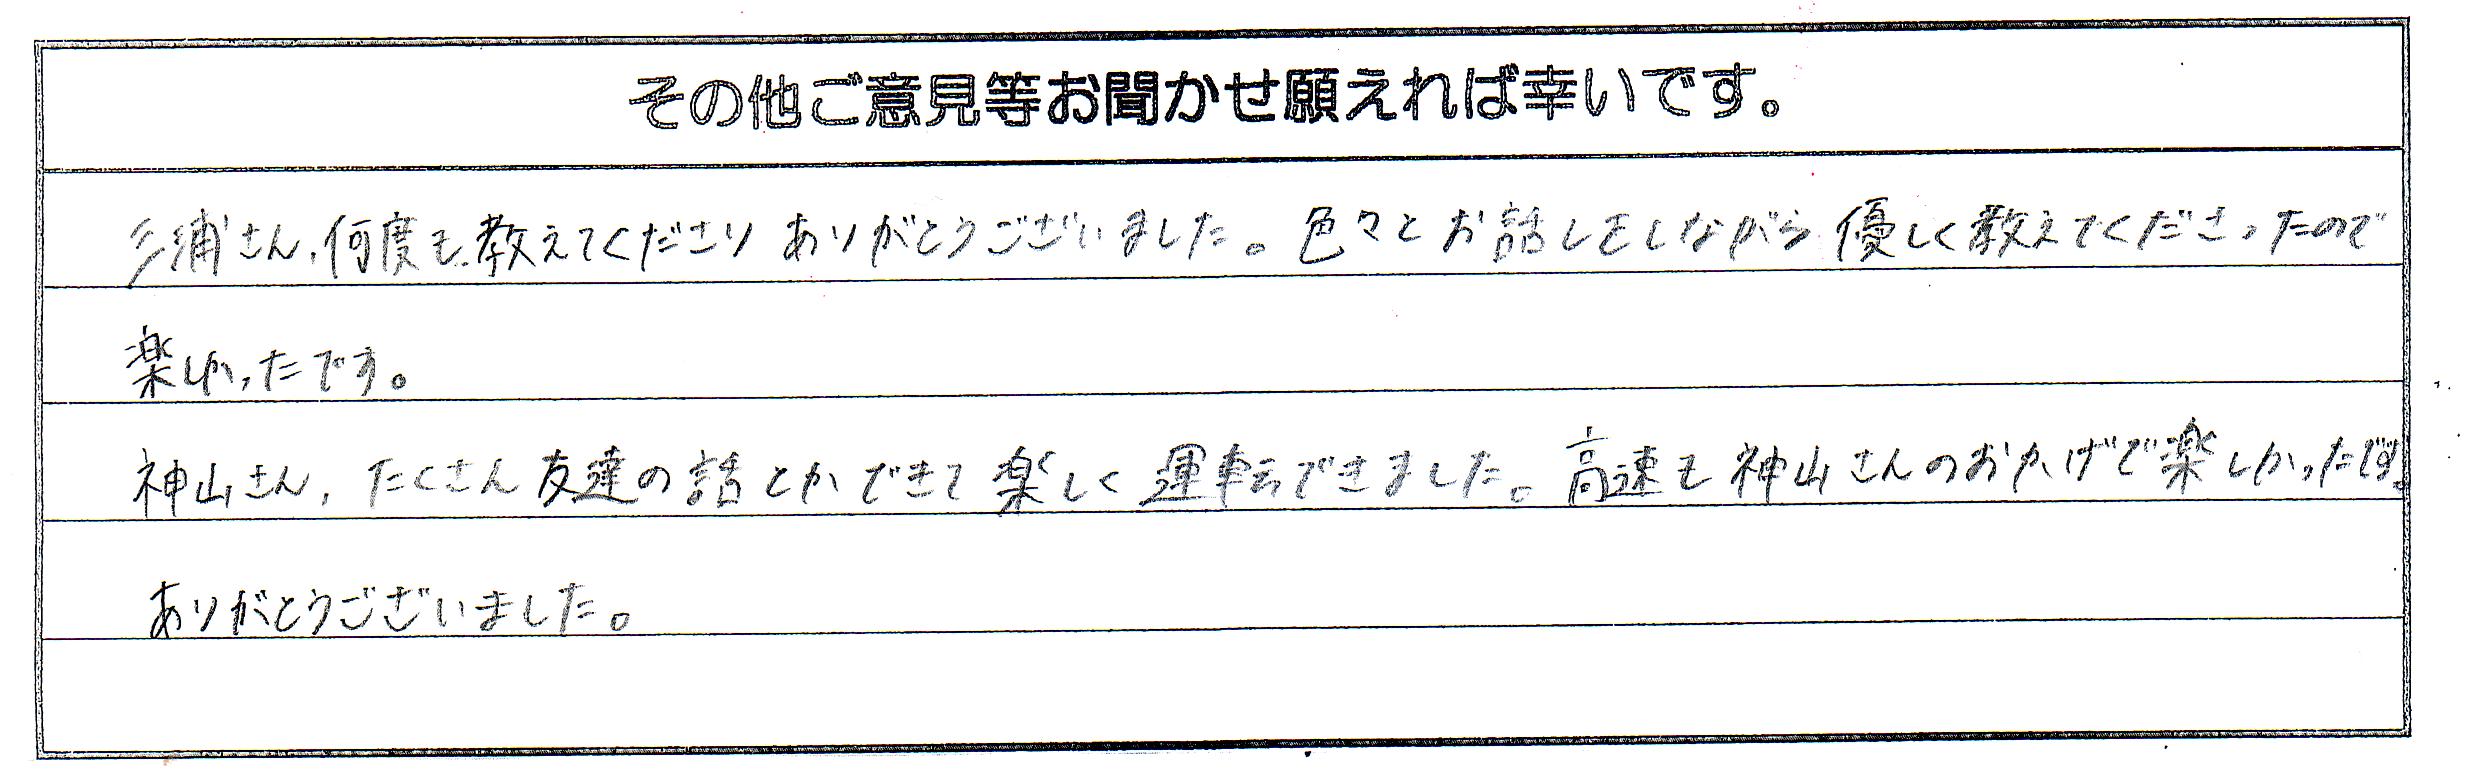 その他ご意見等お聞かせ願えれば幸いです。
三浦さん、何度も教えてくださりありがとうございました。色々とお話しをしながら優しく教えてくださったので
楽しかったです。
神山さん、たくさん友達の話とかできて楽しく運転できました。高速も神山さんのおかげで楽しかったです。
ありがとうございました。